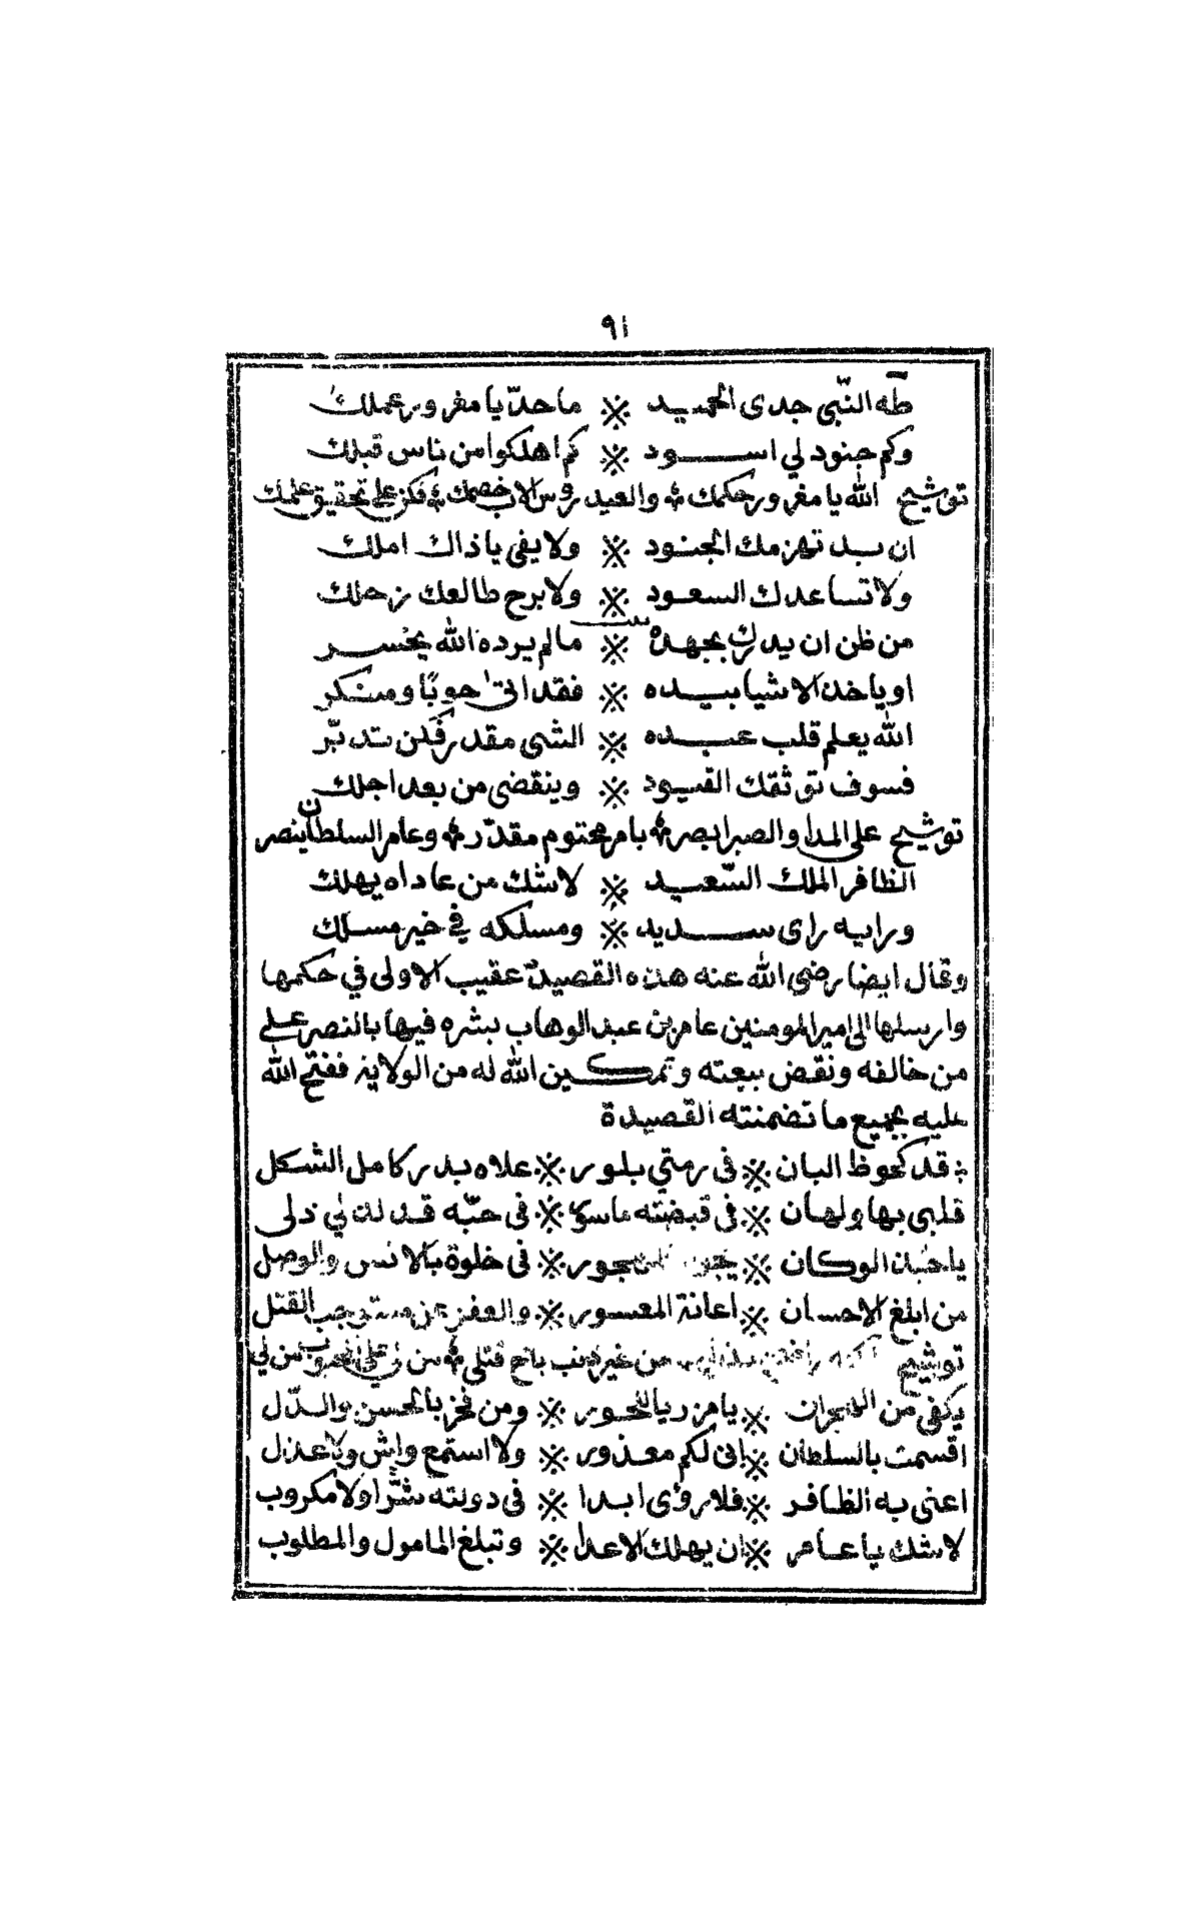 ٩١
طه النّبي جدى الحميد ※ ماحدّ يا مغرور عملك
وكم جنود لي اسود ※ كم اهلكوا من ناس قبلك
توشيح الله يا مغرور حكمك والعيدروس الاب خصمك فكن على تحقيق علمك
ان بد تهزمك الجنود ※ ولا يفي ياذاك املك
ولا تساعدك السعود ※ ولا برح طالعك زحلك
بيت
من ظن ان يدرك بجهده ※ مالم يرده الله يخسر
او ياخذ الاشيا بيده ※ فقد اتى حوبًا ومنكر
الله يعلم قلب عبده ※ الشي مقدر فكن تدبّر
فسوف توثقك القيود ※ وينقضي من بعد اجلك
توشيح على المدا والصبر ابصر بامر محتوم مقدّر وعامر السلطان ينصر
الظافر الملك السّعيد ※ لاشك من عاداه يهلك
ورايه راى سديد ※ ومسلكه في خير مسلك
وقال ايضا رضي الله عنه هذه القصيدة عقيب الاولى في حكمها
وارسلها الى امير المومنين عامر بن عبد الوهاب بشره فيها بالنصر على
من خالفه ونقض بيعته وتمكين الله له من الولاية ففتح الله
عليه بجميع ما تضمنته القصيدة
قد كحوظ البان ※ في رمتي بلور ※ علاه بدر كامل الشكل
قلبي بها ولهان ※ في قبضته ماسور ※ في حبّه قد لذ لي ذلى
ياحبّذا لو كان ※ ※ في خلوة بالانس والوصل
من ابلغ الاحسان ※ اعانة المعسور ※ والعفو عن مستوجب القتل
توشيح من غير ذنب باح قتلي من لي على المحبوب من لي
يكفى من الهجران ※ يا مزريا الحور ※ ومن فخر بالحسن والدّل
اقسمت بالسلطان ※ انى لكم معذور ※ ولا استمع واش ولا عذل
اعني به الظافر ※ فلا روى ابدا ※ فى دولته شرًّا ولا مكروب
لاشك يا عامر ※ ان يهلك الاعدا ※ وتبلغ المامول والمطلوب